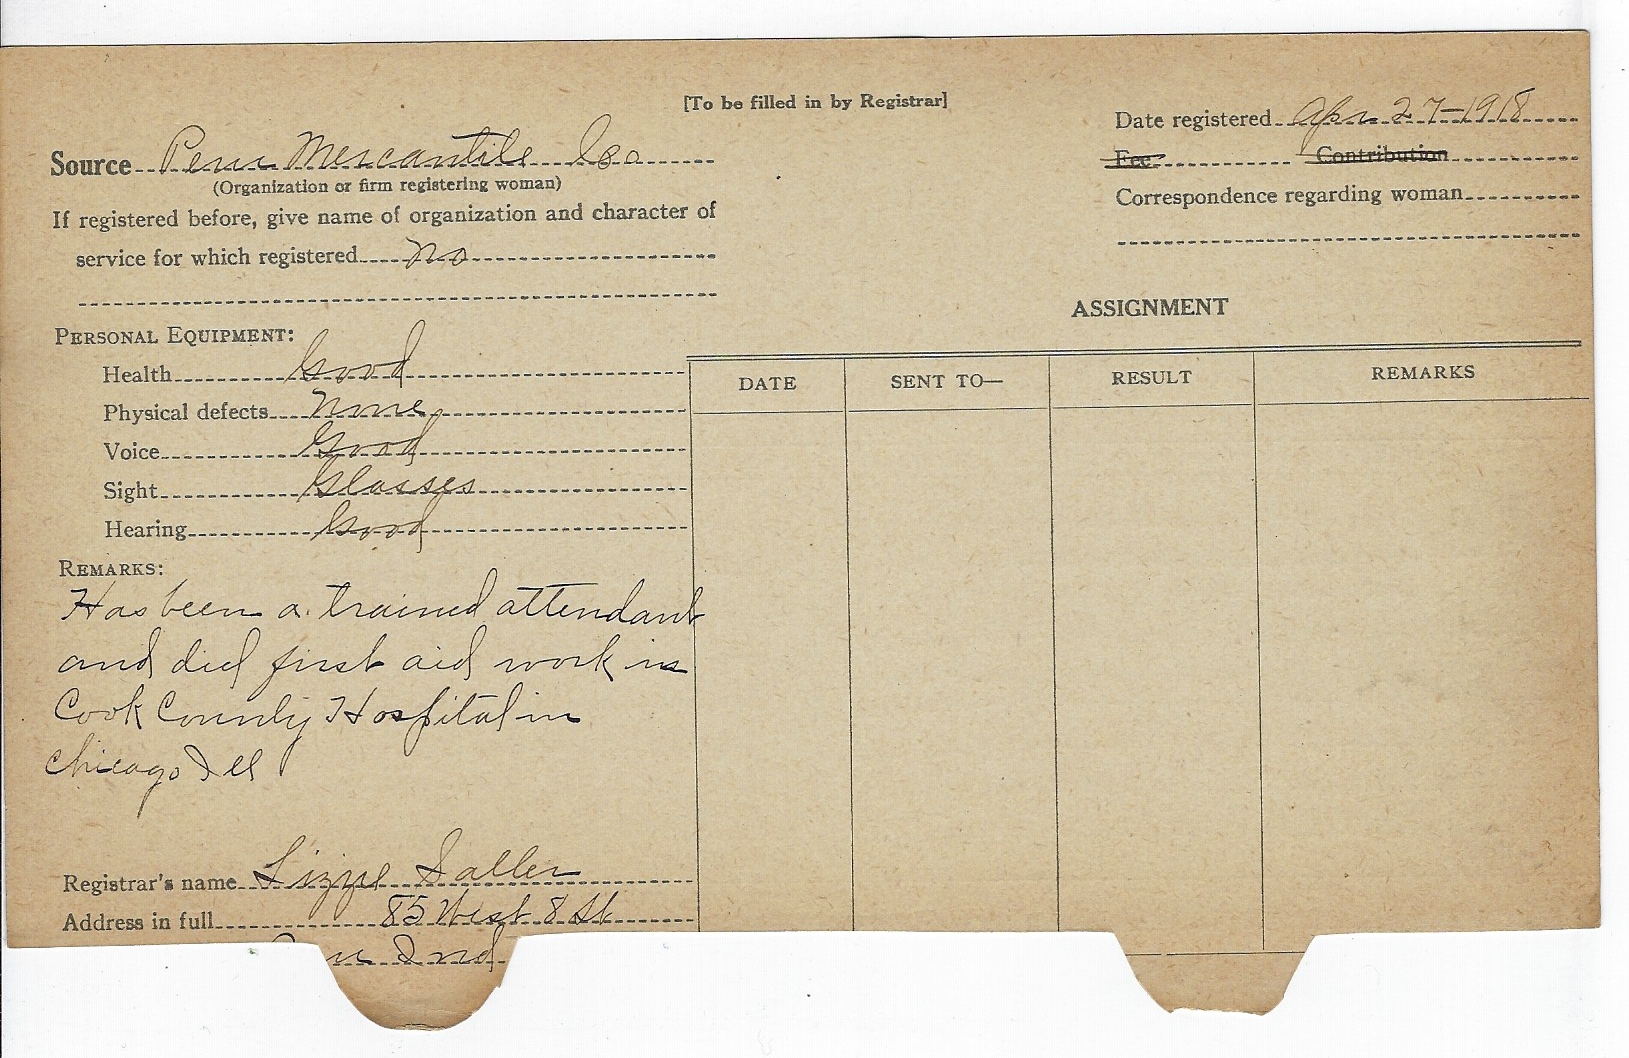 [To be filled in by Registrar]
Date registered Apr 27-1918
Source Peru Mercantile Co
Fee Contribution
(Organization or firm registering woman)
Correspondence regarding woman
If registered before, give name of organization and character of
service for which registered no
ASSIGNMENT
PERSONAL EQUIPMENT:
Health Good
Physical defects None
Voice Good
Sight Glasses
Hearing Good
DATE SENT TO— RESULT REMARKS
REMARKS:
Has been a trained attendant
and did first aid work in
Cook County Hospital in
Chicago Ill
Registrar's name Lizzie Saller
Address in full 85 West 8 St
Ind